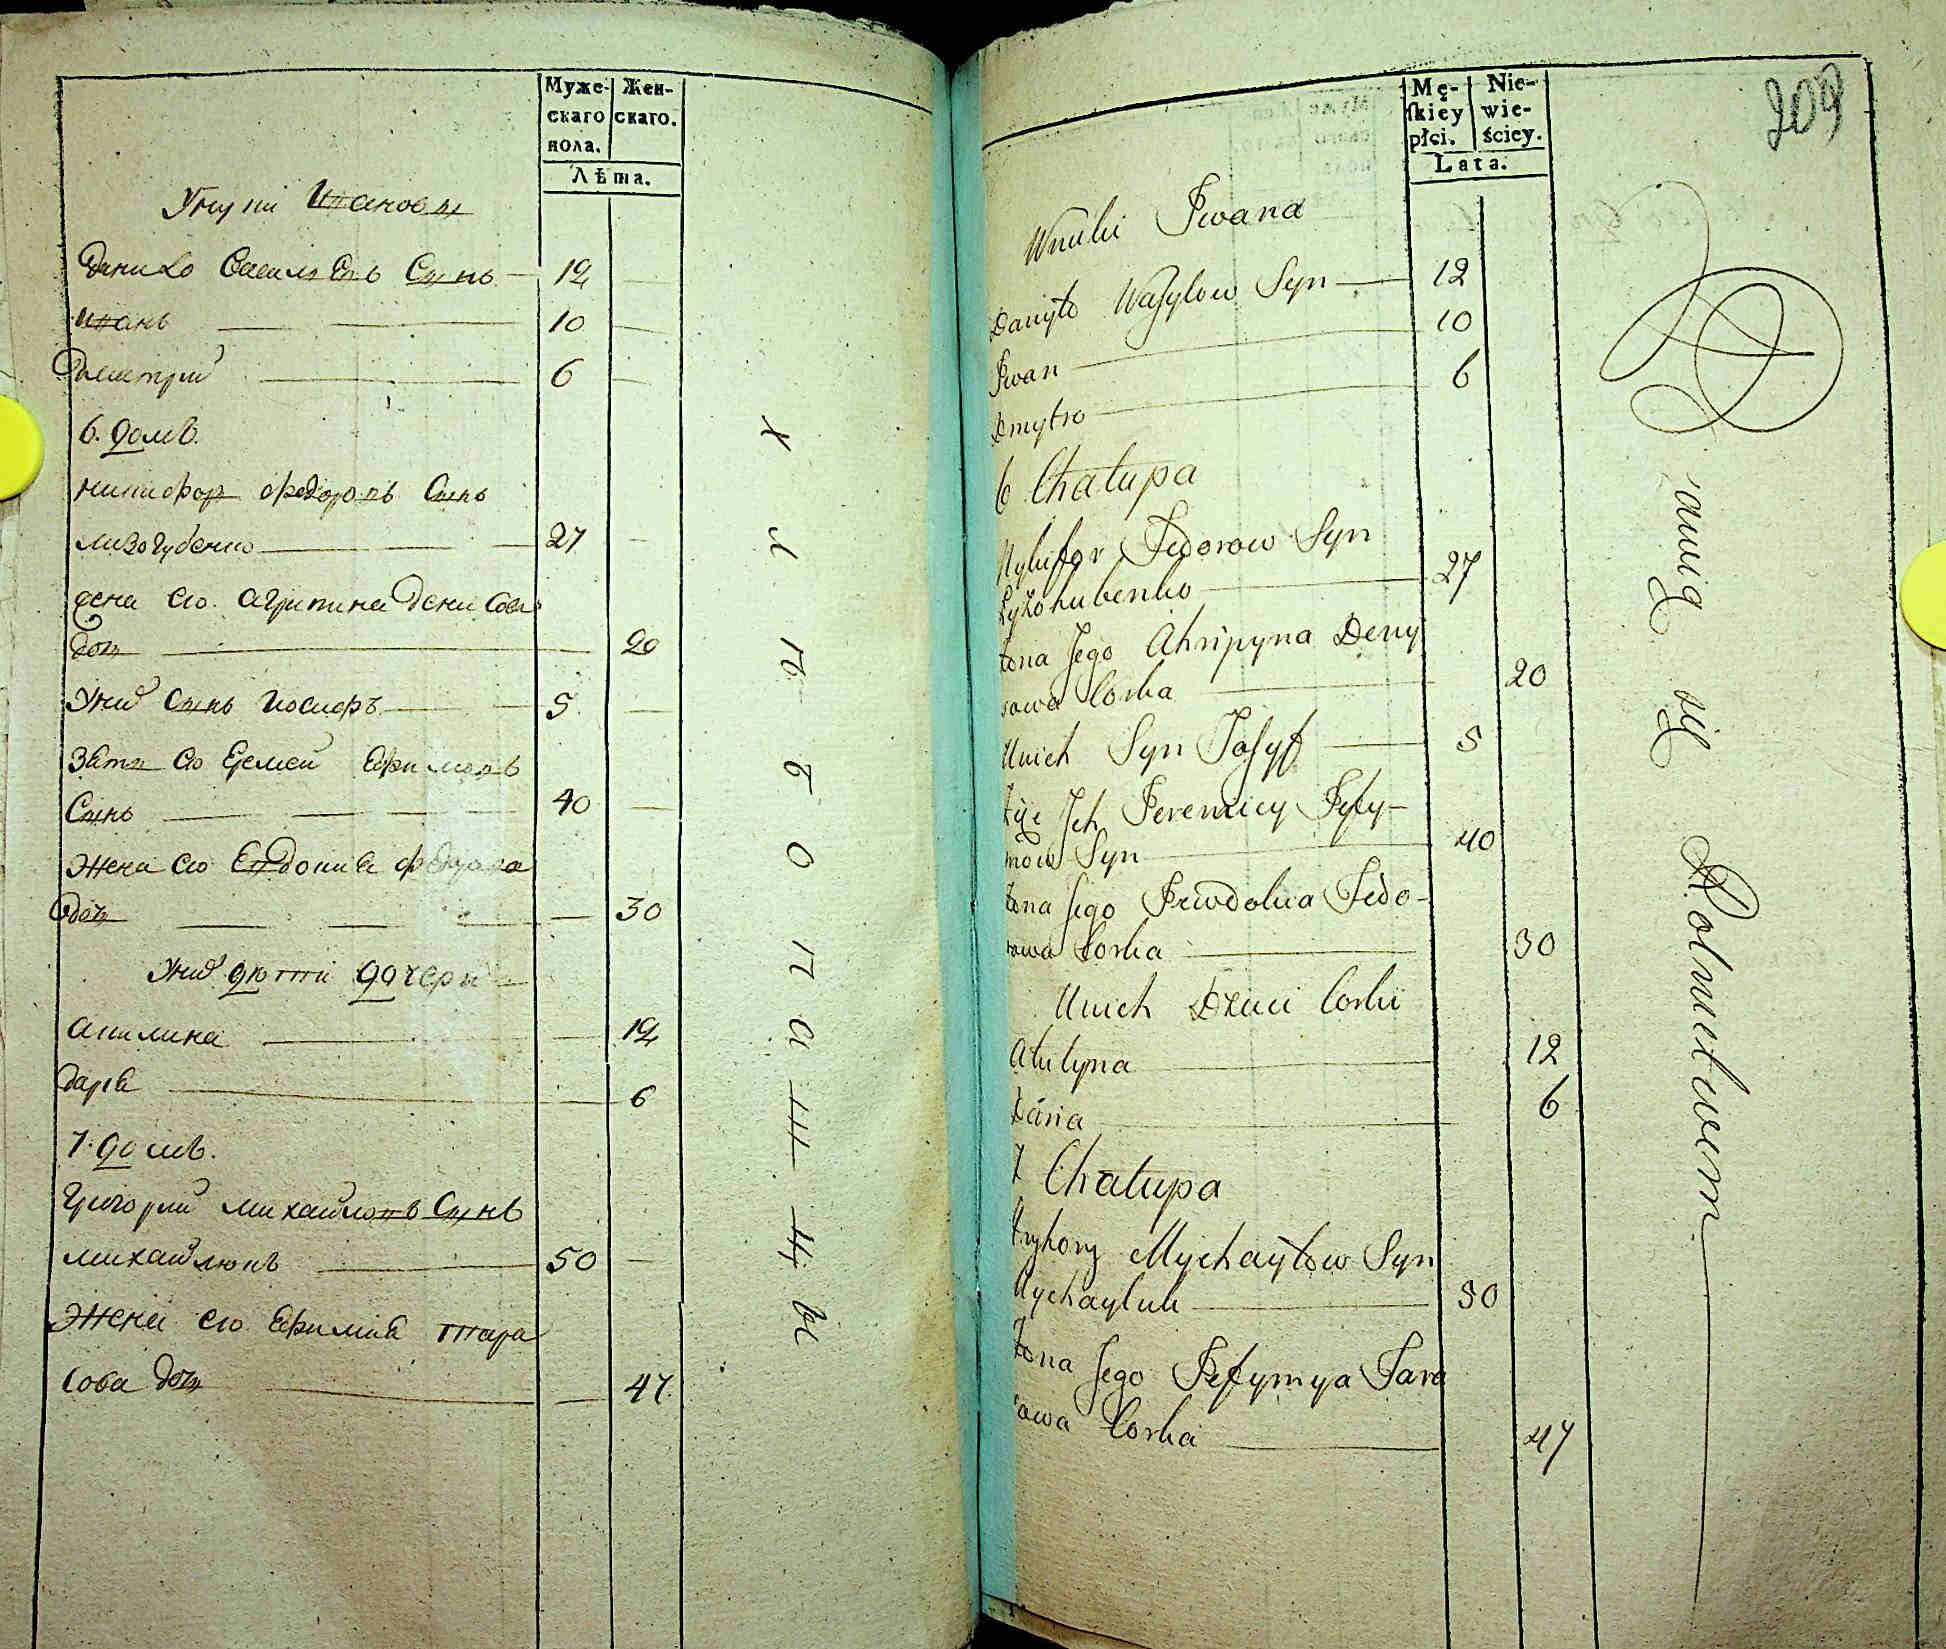 Муже-
скаго
пола.
Жен-
скаго.
Лѣта.
Унуки Ивановы
Данило Василовъ Сынъ 12
Иванъ 10
Дмитрий 6
6. домъ.
Никифор Федоровъ Сынъ
Лизогубенко 27
Жена его Агрипина Дени Сова
дочь 20
Унихъ Сынъ Иосифъ 5
Зять его Еремей Ефимовъ
Сынъ 40
Жена его Евдокия Федорова
дочь 30
Унихъ дети дочери
Акилина 12
Дария 6
7. домъ.
Григорий Михайловъ Сынъ
Михайлюкъ 50
Жена его Ефимия Тара
Сова дочь 47
хлѣбопашцы
209
Mę-
skiey
płci.
Nie-
wie-
ściey.
Lata.
Wnuki Iwana
Danyło Wasylow Syn 12
Iwan 10
Dmytro 6
6 Chałupa
Nykifor Fedorow Syn
Łyzohubenko 27
Żona Jego Ahripyna Deny
sowa Corka 20
Unich Syn Josyf 5
Jch Jeremiey Jefy-
mow Syn 40
Żona Jego Jewdokia Fedo-
rowa Corka 30
Unich Dzieci Corki
Akulyna 12
Daria 6
7 Chałupa
Hryhory Mychayłow Syn
Mychayluk 50
Żona Jego Jefymya Tara
sowa Corka 47
Bawią się Rolnictwem